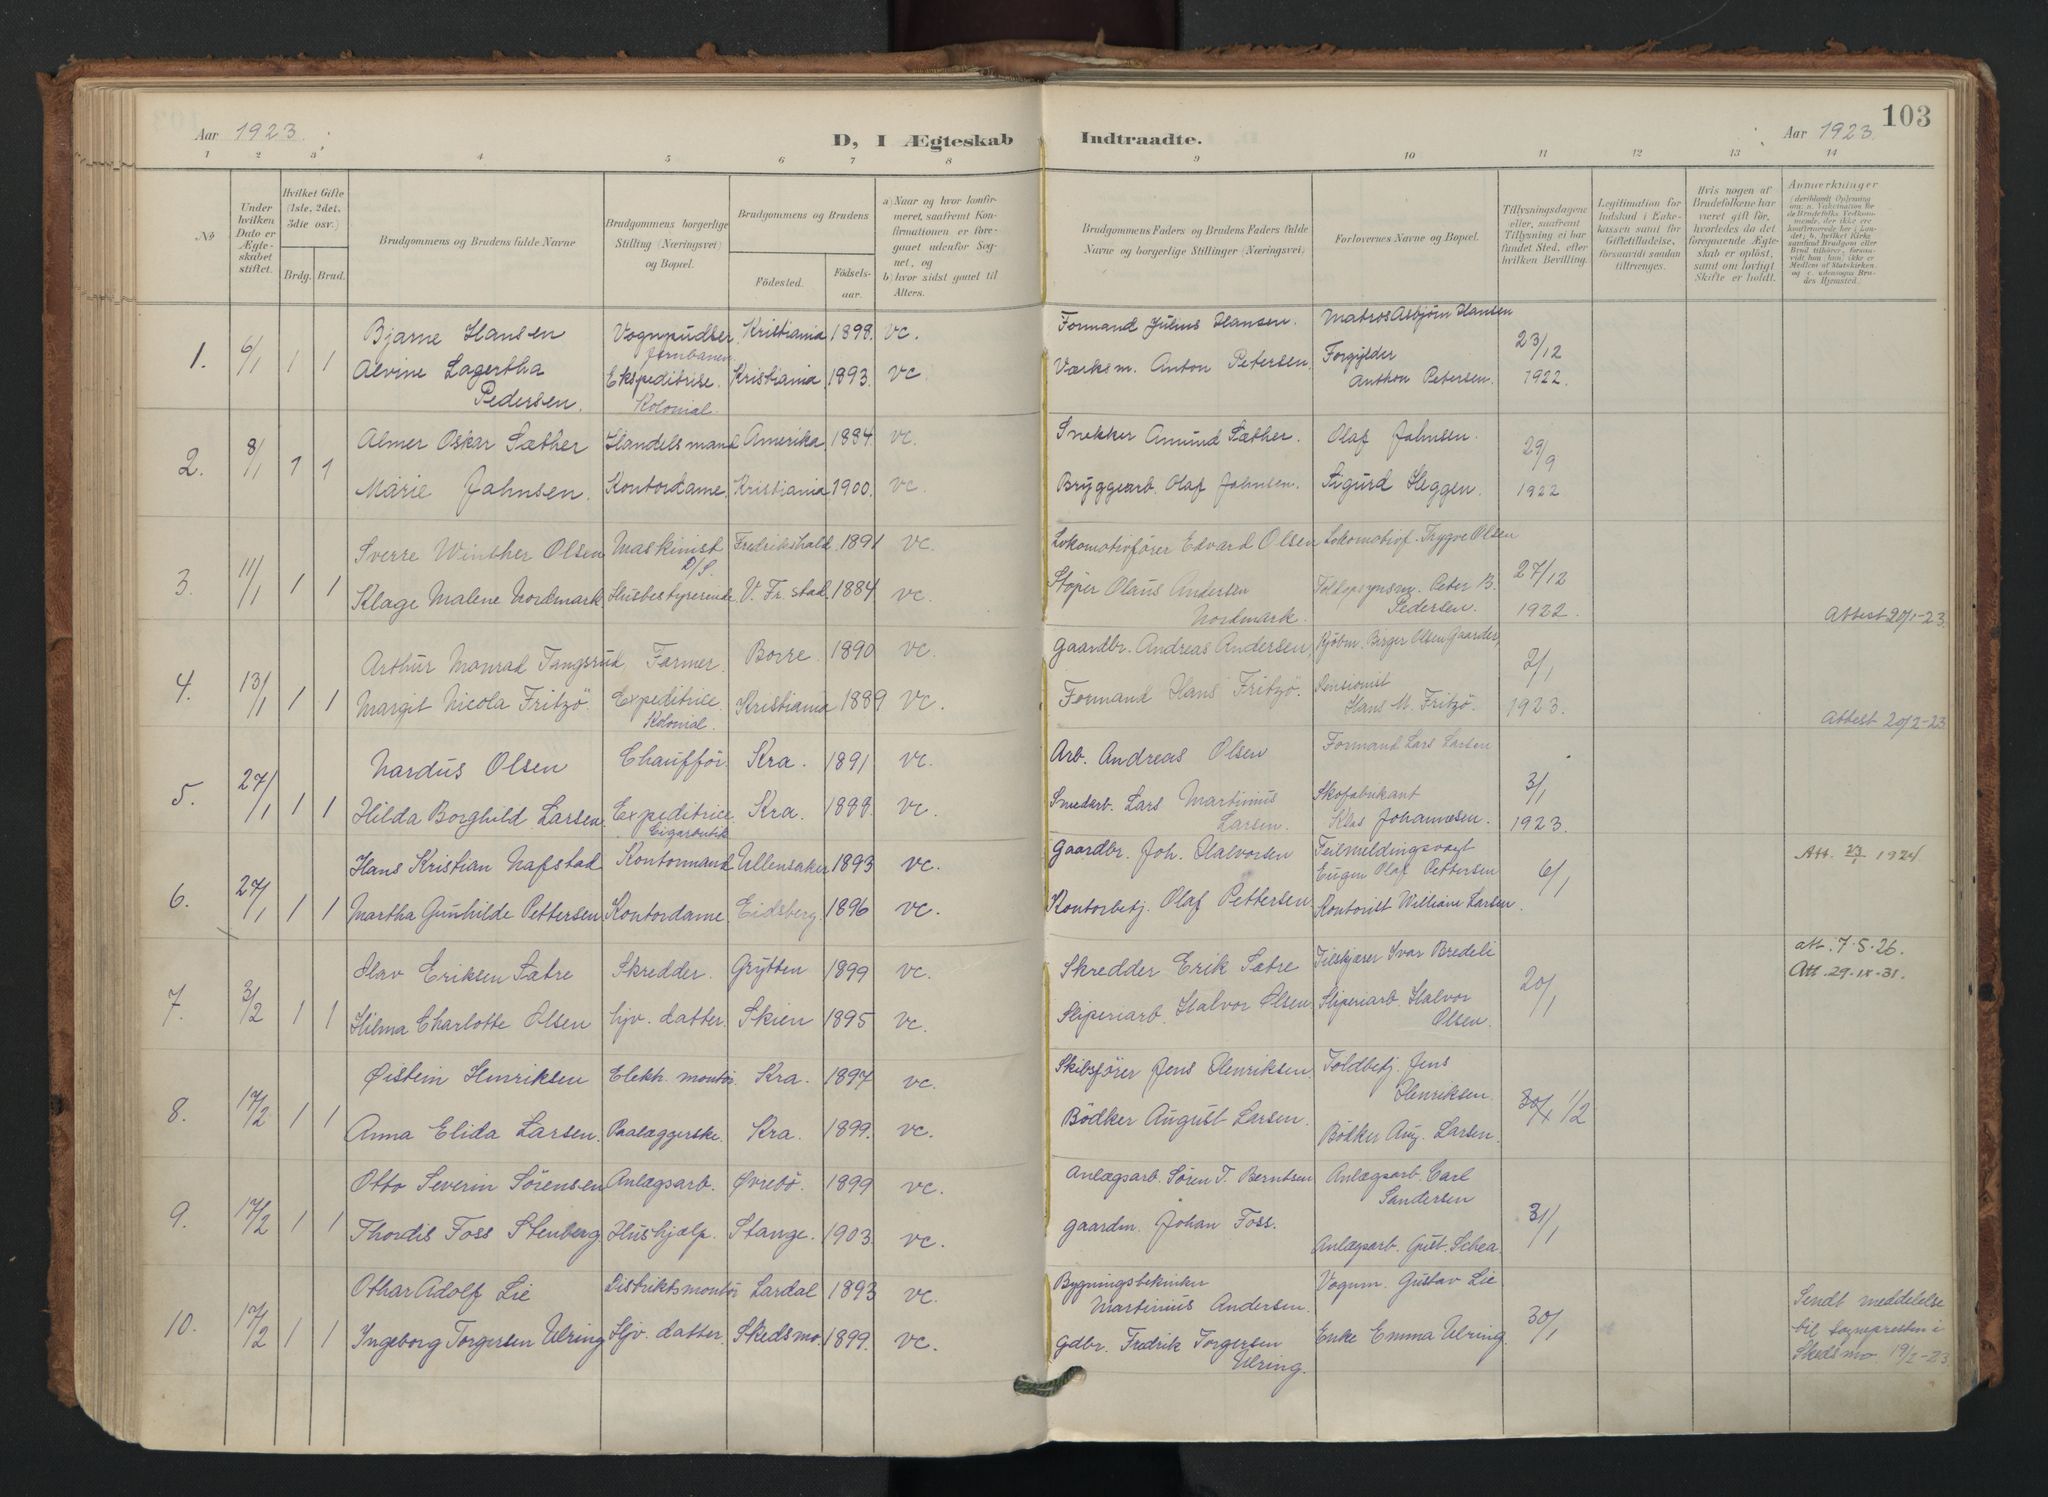 103
Aar 1923.
D, I Ægteskab Indtraadte.
Aar 1923
1 2 3 4 5 6 7 8 9 10 11 12 13 14
No
Under hvilken Dato er Ægteskabet stiftet.
Hvilket Gifte (1ste, 2det, 3die osv.)
Brdg. Brud.
Brudgommens og Brudens fulde Navne
Brudgommens borgerlige Stilling (Næringsvei) og Bopæl.
Brudgommens og Brudens
Fødested.
Fødselsaar.
a) Naar og hvor konfirmeret, saafremt Konfirmationen er foregaaet udenfor Sognet, og
b) hvor sidst gaaet til Alters.
Brudgommens Faders og Brudens Faders fulde Navne og borgerlige Stillinger (Næringsvei).
Forlovernes Navne og Bopæl.
Tillysningsdagene eller, saafremt Tillysning ei har fundet Sted, efter hvilken Bevilling.
Legitimation for Indskud i Enkekassen samt for Giftetilladelse, forsaavidt saadan tiltrænges.
Hvis nogen af Brudefolkene har været gift før, hvorledes da det foregaaende Ægteskab er opløst, samt om lovligt Skifte er holdt.
Anmerkninger
1. 6/1 1 1
Bjarne Hansen Vognpudser Jernbanen Kristiania 1898. vc. Formand Julius Hansen. Matros Asbjørn Hansen 23/12
Alvine Lagertha Pedersen. Ekspeditrise. Kolonial. Kristiania 1893. vc. Værksm. Anton Petersen. Forgylder Anthon Petersen. 1922.
2. 8/1 1 1
Almer Oskar Sæther Handelsmand Amerika. 1884. vc. Snekker Amund Sæther. Olaf Jahnsen. 29/9
Marie Jahnsen. Kontordame. Kristiania 1900. vc. Bryggearb. Olaf Jahnsen. Sigurd Heggen. 1922
3. 11/1 1 1
Sverre Winther Olsen Maskinist D/S. Fredrikshald. 1891 vc. Lokomotivfører Edvard Olsen Lokomotivf. Trygve Olsen 27/12
Klage Malene Nordmark Husbestyrerinde V. Fr.stad. 1884 vc. Støper Olaus Andersen Nordmark. Toldopsynsm. Peter B. Pedersen. 1922. Attest 20/1-23.
4. 13/1 1 1
Arthur Monrad Tangsrud Farmer. Borre. 1890 vc. Gaardbr. Andreas Andersen Kjøbm. Birger Olsen Gaarder, 2/1
Margit Nicola Fritzö. Expeditrice Kolonial. Kristiania 1889 vc. Formand Hans Fritzö. Pensionist Hans M. Fritzö. 1923. Attest 20/2-23
5. 27/1 1 1
Nardus Olsen Chauffør. Kra. 1891 vc. Arb. Andreas Olsen Formand Lars Larsen 3/1
Hilda Borghild Larsen. Expeditrice Cigarbutik Kra. 1888. vc. Smedarb. Lars Martinius Larsen. Skofabrikant Klas Johannesen. 1923.
6. 27/1 1 1
Hans Kristian Nafstad Kontormand Ullensaker 1893 vc. Gaardbr. Joh. Halvorsen Feilmeldingsvagt Eugen Olaf Pettersen 6/1 Att. 23/1 1924.
Martha Gunhilde Pettersen Kontordame Eidsberg. 1896 vc. Kontorbetj. Olaf Pettersen. Kontorist William Larsen.
7. 3/2 1 1
Olav Eriksen Sætre Skredder. Grytten 1899 vc. Skredder Erik Sætre Tilskjærer Ivar Bredeli 20/1 att. 7.5.26. Att. 29.IX.31.
Hilma Charlotte Olsen hjv. datter. Skien 1895 vc. Sliperiarb. Halvor Olsen Sliperiarb. Halvor Olsen.
8. 17/2 1 1
Øistein Henriksen Elektr. montör. Kra. 1897 vc. Skibsfører Jens Henriksen. Toldbetj. Jens Henriksen. 30/1 1/2
Anna Elida Larsen. Paalæggerske. Kra. 1899. vc. Bödker August Larsen. Bödker Aug. Larsen.
9. 17/2 1 1
Otto Severin Sörensen Anlægsarb. Øvrebö. 1899 vc. Anlægsarb. Sören T. Berntsen Anlægsarb. Carl Sandersen 31/1
Thordis Foss Stenberg Hushjælp. Stange. 1903. vc. Gaardm. Johan Foss. Anlægsarb. Gust. Schea
10. 17/2 1 1
Othar Adolf Lie Distriktsmontör Lardal 1893 vc. Bygningstekniker Martinius Andersen. Vognm. Gustav Lie 30/1
Ingeborg Torgersen Ulring Hjv. datter. Skedsmo. 1899. vc. Gdbr. Fredrik Torgersen Ulring. Enke Emma Ulring. Sendt meddelelse til sognepresten i Skedsmo. 19/2-23